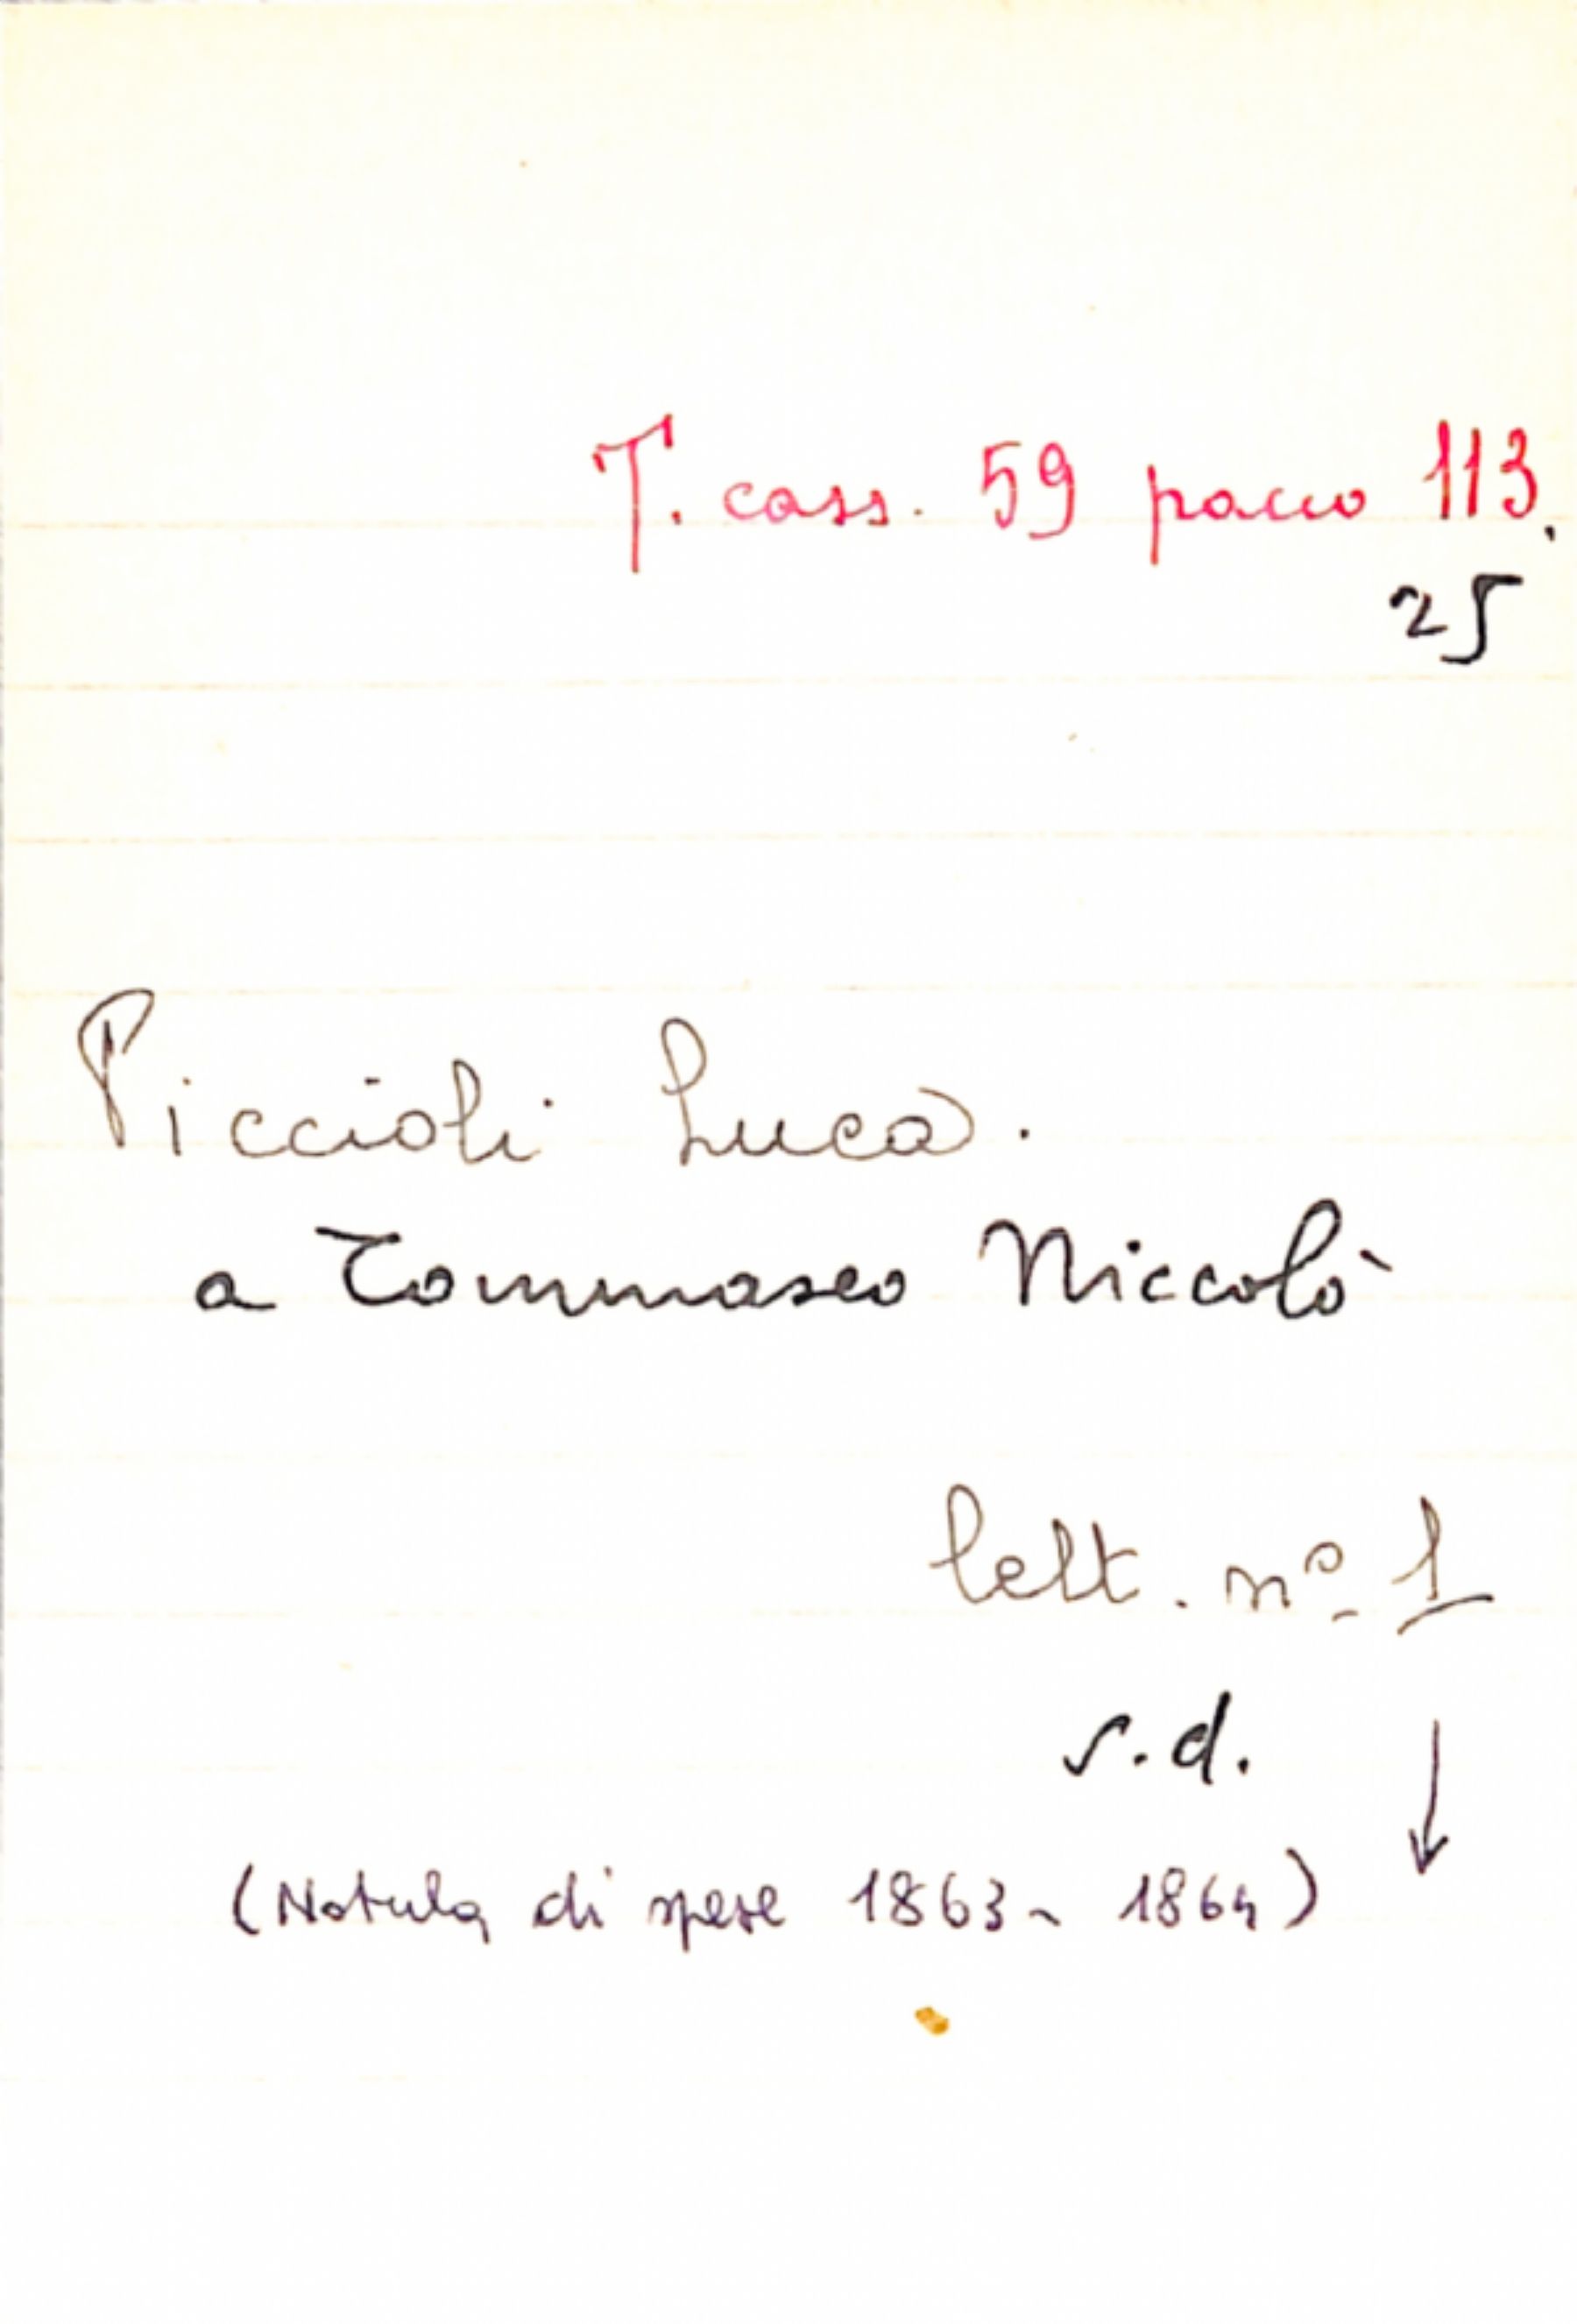 T. cass. 59 pacco 113.
25
Piccioli Luca.
a Tommaseo Niccolò
lett. nº 1
s.d.
(Notula di spese 1863-1864)